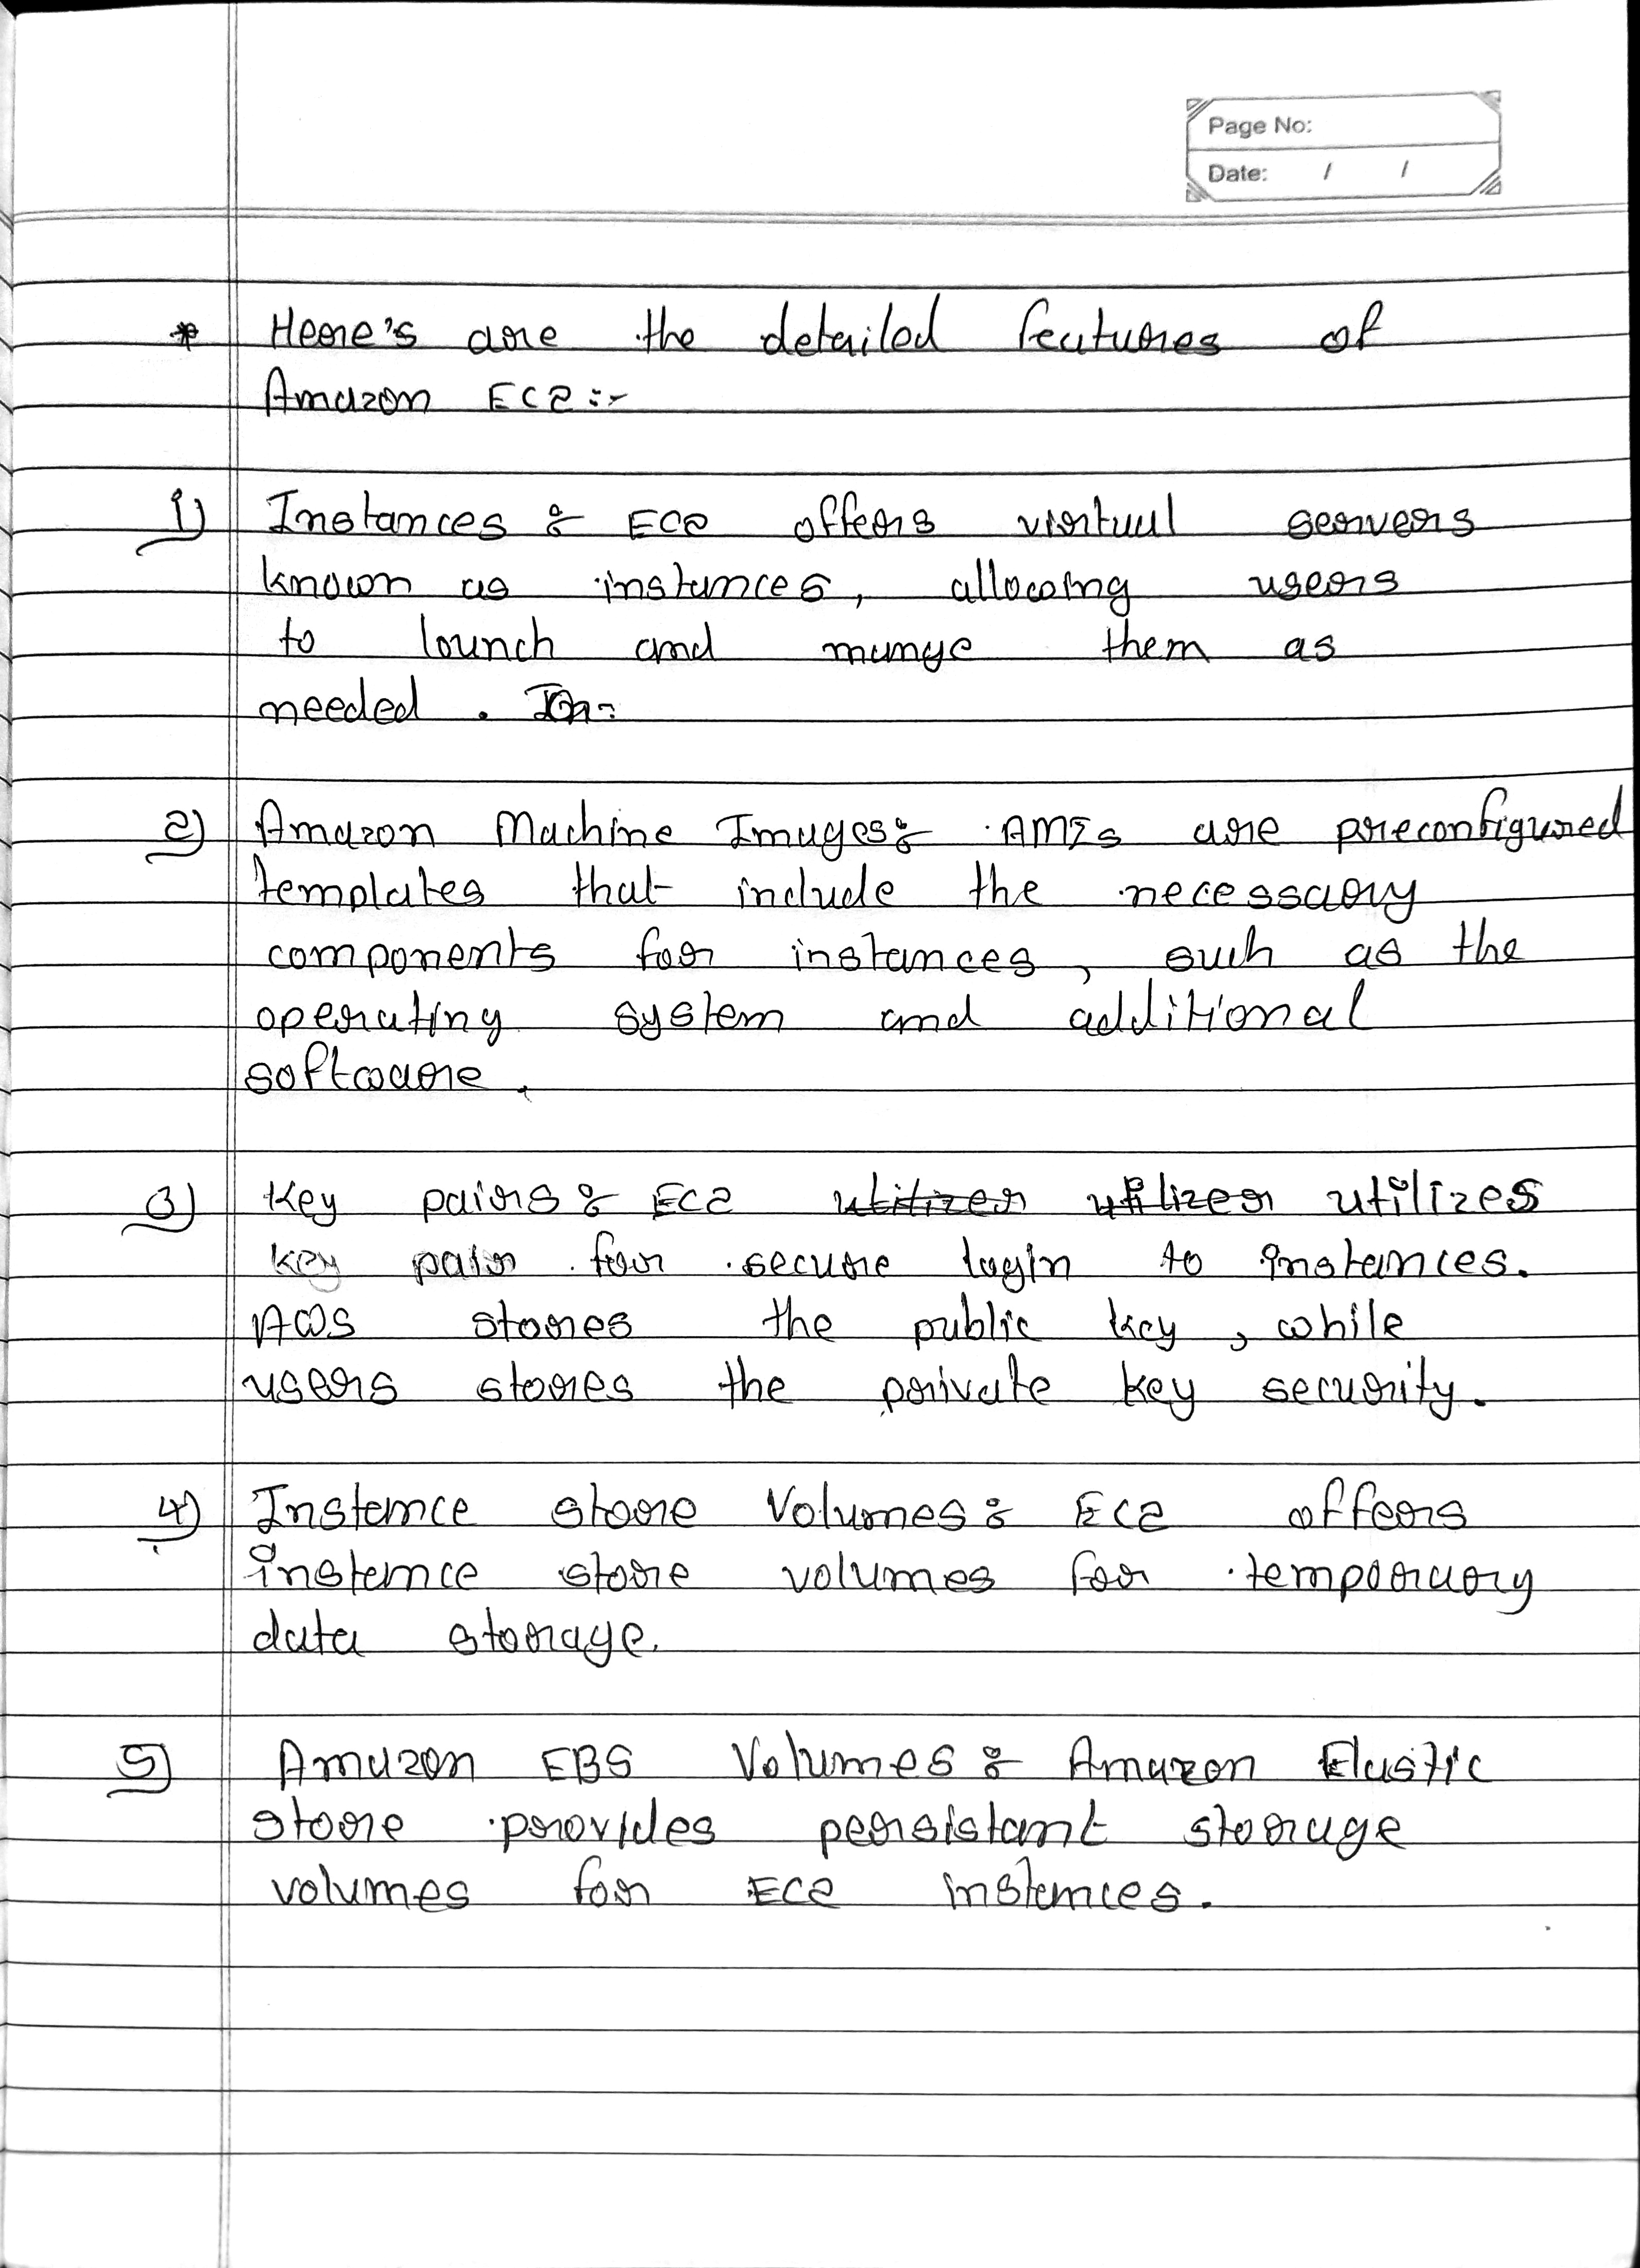 Page No:
Date: / /
* Here's are the detailed features of
Amazon EC2 :-
1) Instances : EC2 offers virtual servers
known as instances, allowing users
to lounch and mange them as
needed .
2) Amazon Machine Images : AMIs are preconfigured
templates that include the necessary
components for instances, such as the
operating system and additional
software.
3) Key pairs : EC2 utilizes
key pair for secure login to instances.
AWS stores the public key, while
users stores the private key security.
4) Instance store Volumes : EC2 offers
instance store volumes for temporary
data storage.
5) Amazon EBS Volumes : Amazon Elastic
store provides persistant storage
volumes for EC2 instances.